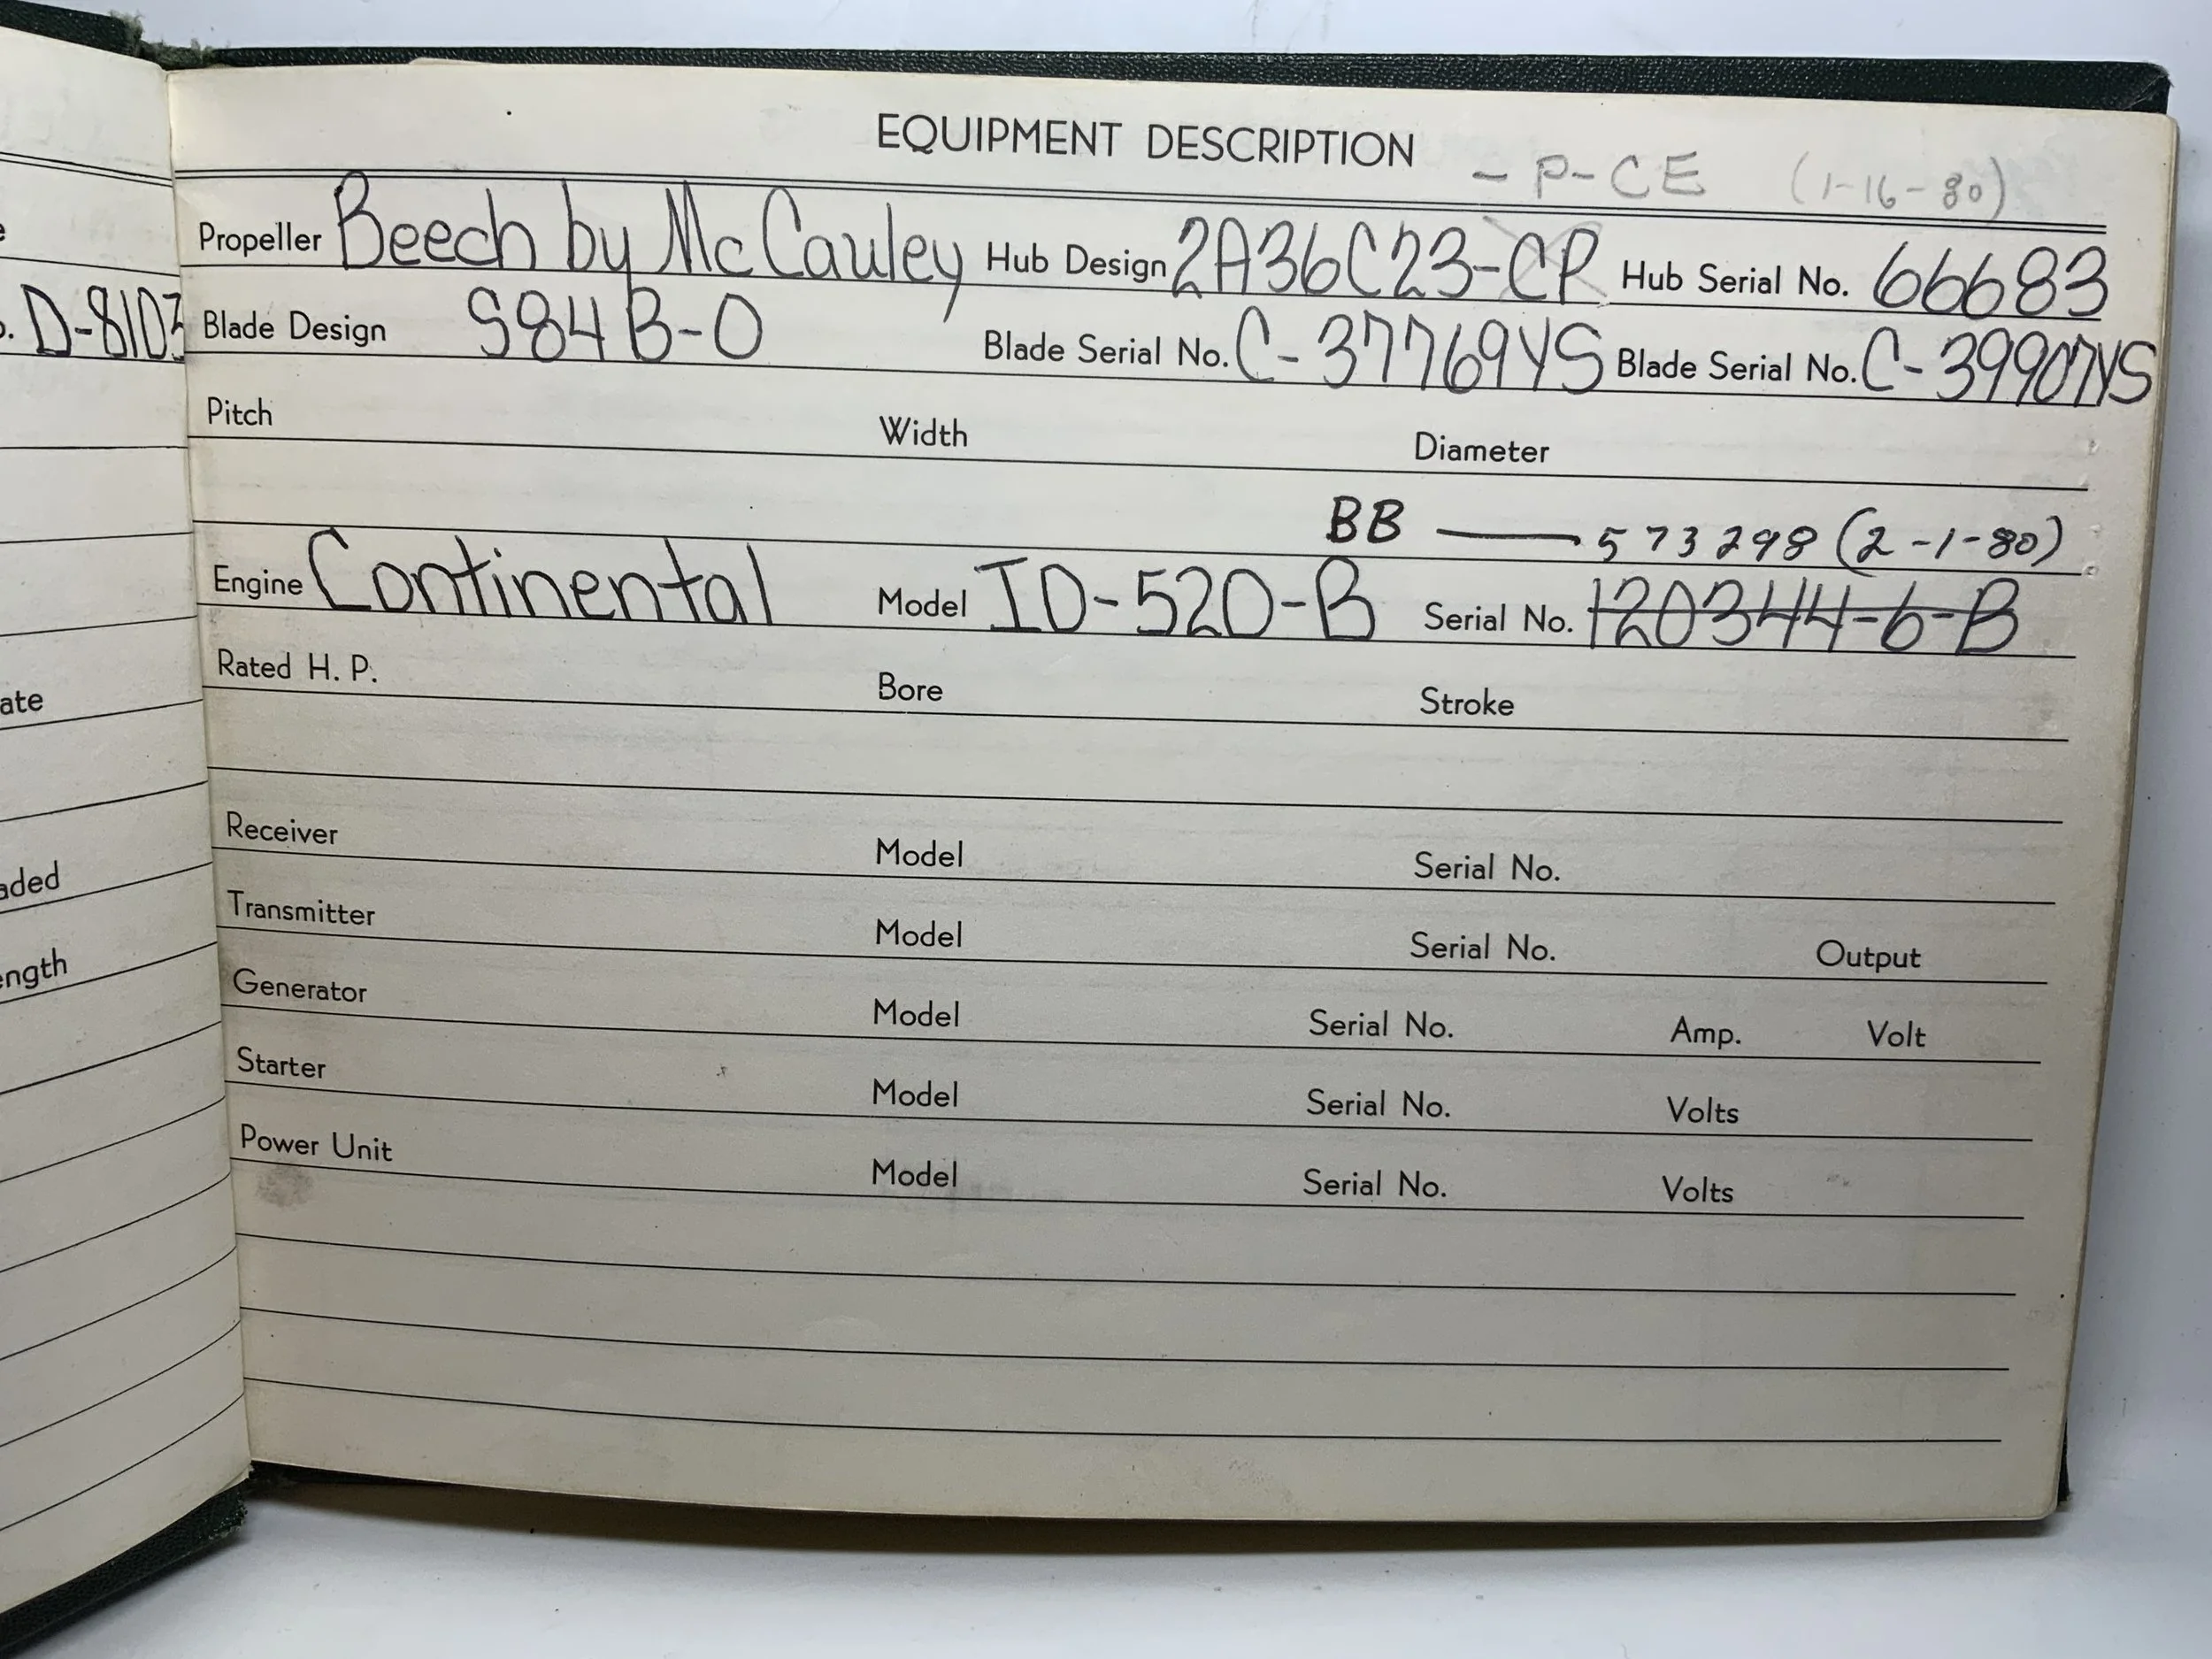 EQUIPMENT DESCRIPTION
- P-CE (1-16-80)
Propeller Beech by McCauley Hub Design 2A36C23-CP Hub Serial No. 66683
D-8103 Blade Design S84B-0 Blade Serial No. C-37769YS Blade Serial No. C-39907YS
Pitch Width Diameter
BB — 573298 (2-1-80)
Engine Continental Model IO-520-B Serial No. 120344-6-B
Rated H. P. Bore Stroke
ate
Receiver Model Serial No.
aded
Transmitter Model Serial No. Output
ength
Generator Model Serial No. Amp. Volt
Starter Model Serial No. Volts
Power Unit Model Serial No. Volts